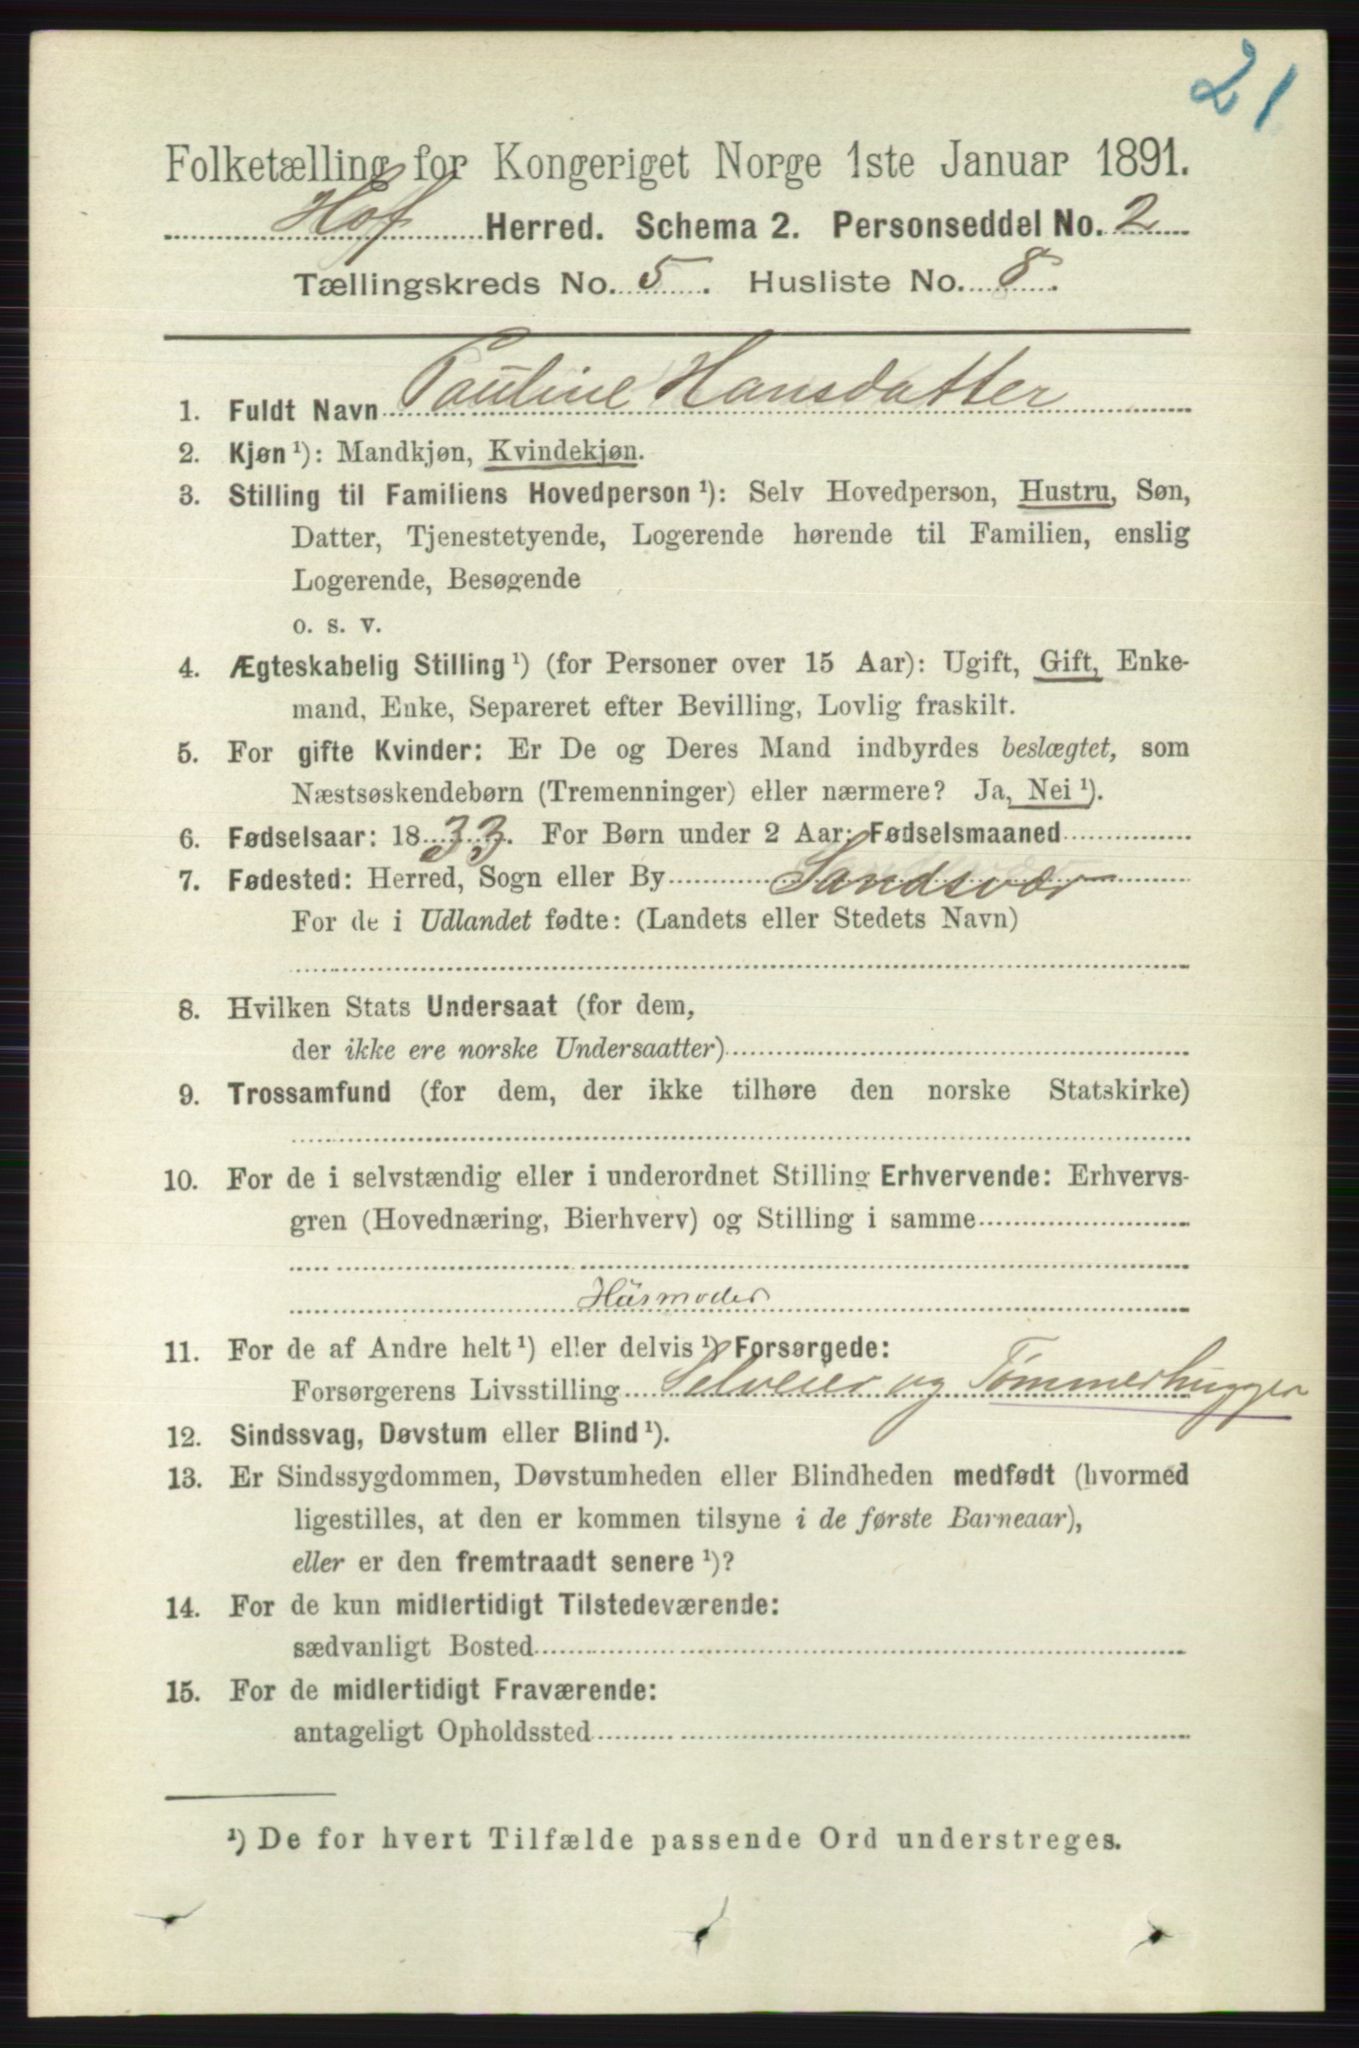 21
Folketælling for Kongeriget Norge 1ste Januar 1891.
Hof Herred. Schema 2. Personseddel No. 2
Tællingskreds No. 5. Husliste No. 8.
1. Fuldt Navn Pauline Hansdatter
2. Kjøn ¹): Mandkjøn, Kvindekjøn.
3. Stilling til Familiens Hovedperson ¹): Selv Hovedperson, Hustru, Søn,
Datter, Tjenestetyende, Logerende hørende til Familien, enslig
Logerende, Besøgende
o. s. v.
4. Ægteskabelig Stilling ¹) (for Personer over 15 Aar): Ugift, Gift, Enke-
mand, Enke, Separeret efter Bevilling, Lovlig fraskilt.
5. For gifte Kvinder: Er De og Deres Mand indbyrdes beslægtet, som
Næstsøskendebørn (Tremenninger) eller nærmere? Ja, Nei ¹).
6. Fødselsaar: 1833. For Børn under 2 Aar: Fødselsmaaned
7. Fødested: Herred, Sogn eller By Sandsvær
For de i Udlandet fødte: (Landets eller Stedets Navn)
8. Hvilken Stats Undersaat (for dem,
der ikke ere norske Undersaatter)
9. Trossamfund (for dem, der ikke tilhøre den norske Statskirke)
10. For de i selvstændig eller i underordnet Stilling Erhvervende: Erhvervs-
gren (Hovednæring, Bierhverv) og Stilling i samme
Husmoder
11. For de af Andre helt ¹) eller delvis ¹) Forsørgede:
Forsørgerens Livsstilling Selveier og Tømmerhugger
12. Sindssvag, Døvstum eller Blind ¹).
13. Er Sindssygdommen, Døvstumheden eller Blindheden medfødt (hvormed
ligestilles, at den er kommen tilsyne i de første Barneaar),
eller er den fremtraadt senere ¹)?
14. For de kun midlertidigt Tilstedeværende:
sædvanligt Bosted
15. For de midlertidigt Fraværende:
antageligt Opholdssted
¹) De for hvert Tilfælde passende Ord understreges.